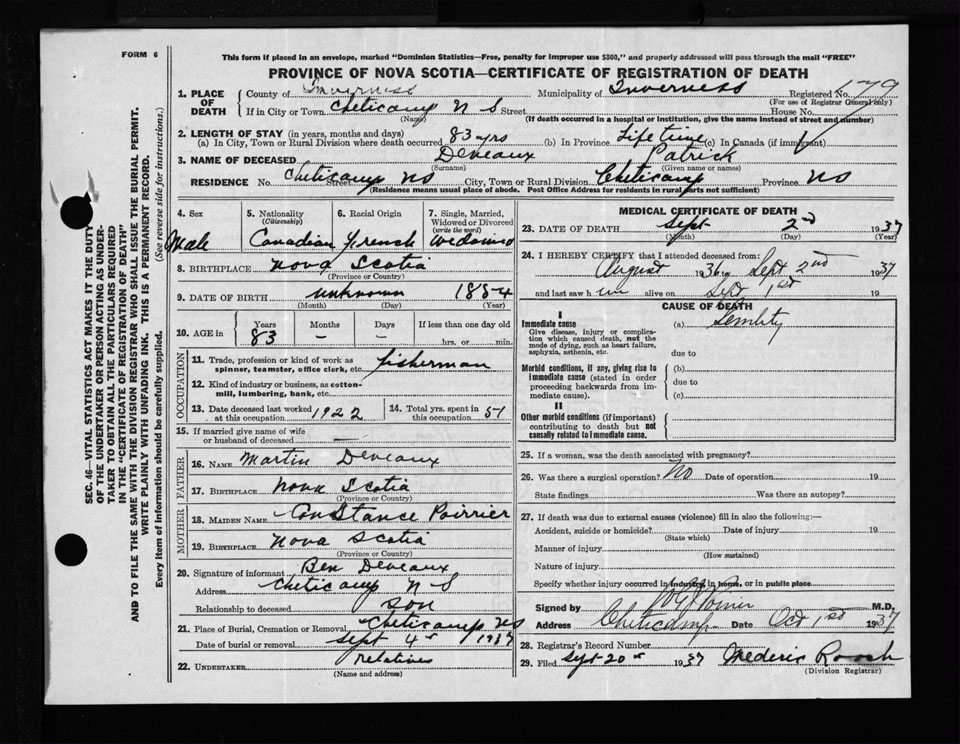 FORM 6
This form if placed in an envelope, marked "Dominion Statistics—Free, penalty for improper use $300," and properly addressed will pass through the mail "FREE"
PROVINCE OF NOVA SCOTIA—CERTIFICATE OF REGISTRATION OF DEATH
1. PLACE OF DEATH County of Inverness Municipality of Inverness Registered No. 179
(For use of Registrar General only)
If in City or Town Cheticamp N S Street House No.
(Name) (If death occurred in a hospital or institution, give the name instead of street and number)
2. LENGTH OF STAY (in years, months and days)
(a) In City, Town or Rural Division where death occurred 83 yrs (b) In Province Life time (c) In Canada (if immigrant)
3. NAME OF DECEASED Deveaux Patrick
(Surname) (Given name or names)
RESIDENCE No. Street Cheticamp NS City, Town or Rural Division Cheticamp Province NS
(Residence means usual place of abode. Post Office Address for residents in rural parts not sufficient)
4. Sex 5. Nationality (Citizenship) 6. Racial Origin 7. Single, Married, Widowed or Divorced (write the word)
Male Canadian French
8. BIRTHPLACE Nova Scotia
(Province or Country)
9. DATE OF BIRTH unknown 1854
(Month) (Day) (Year)
10. AGE in Years Months Days If less than one day old
83 – – hrs. or min.
OCCUPATION
11. Trade, profession or kind of work as spinner, teamster, office clerk, etc. fisherman
12. Kind of industry or business, as cotton-mill, lumbering, bank, etc.
13. Date deceased last worked at this occupation 1922 14. Total yrs. spent in this occupation 51
15. If married give name of wife or husband of deceased —
FATHER
16. NAME Martin Deveaux
17. BIRTHPLACE Nova Scotia
(Province or Country)
MOTHER
18. MAIDEN NAME Constance Poirrier
19. BIRTHPLACE Nova Scotia
(Province or Country)
20. Signature of informant Ben Deveaux
Address Cheticamp N S
Relationship to deceased son
21. Place of Burial, Cremation or Removal Cheticamp NS
Date of burial or removal Sept 4 1937
22. UNDERTAKER relatives
(Name and address)
MEDICAL CERTIFICATE OF DEATH
23. DATE OF DEATH Sept 2nd 1937
(Month) (Day) (Year)
24. I HEREBY CERTIFY that I attended deceased from:
August 1936 Sept 2nd 1937
and last saw him alive on Sept 1st 19
CAUSE OF DEATH
I
Immediate cause (a)
Give disease, injury or complication which caused death, not the mode of dying, such as heart failure, asphyxia, asthenia, etc.
due to
Morbid conditions, if any, giving rise to immediate cause (stated in order proceeding backwards from immediate cause).
(b)
due to
(c)
II
Other morbid conditions (if important) contributing to death but not causally related to immediate cause.
25. If a woman, was the death associated with pregnancy?
26. Was there a surgical operation? No Date of operation 19
State findings Was there an autopsy?
27. If death was due to external causes (violence) fill in also the following:—
Accident, suicide or homicide? Date of injury 19
(State which)
Manner of injury
(How sustained)
Nature of injury
Specify whether injury occurred in industry, in home, or in public place
Signed by M.D.
Address Cheticamp Date Oct 1st 1937
28. Registrar's Record Number
29. Filed Sept 20 1937 Mederic Roach
(Division Registrar)
SEC. 46—VITAL STATISTICS ACT MAKES IT THE DUTY
OF THE UNDERTAKER OR PERSON ACTING AS UNDER-
TAKER TO OBTAIN ALL THE PARTICULARS REQUIRED
IN THE "CERTIFICATE OF REGISTRATION OF DEATH"
AND TO FILE THE SAME WITH THE DIVISION REGISTRAR WHO SHALL ISSUE THE BURIAL PERMIT.
WRITE PLAINLY WITH UNFADING INK. THIS IS A PERMANENT RECORD.
Every item of information should be carefully supplied. (See reverse side for instructions.)